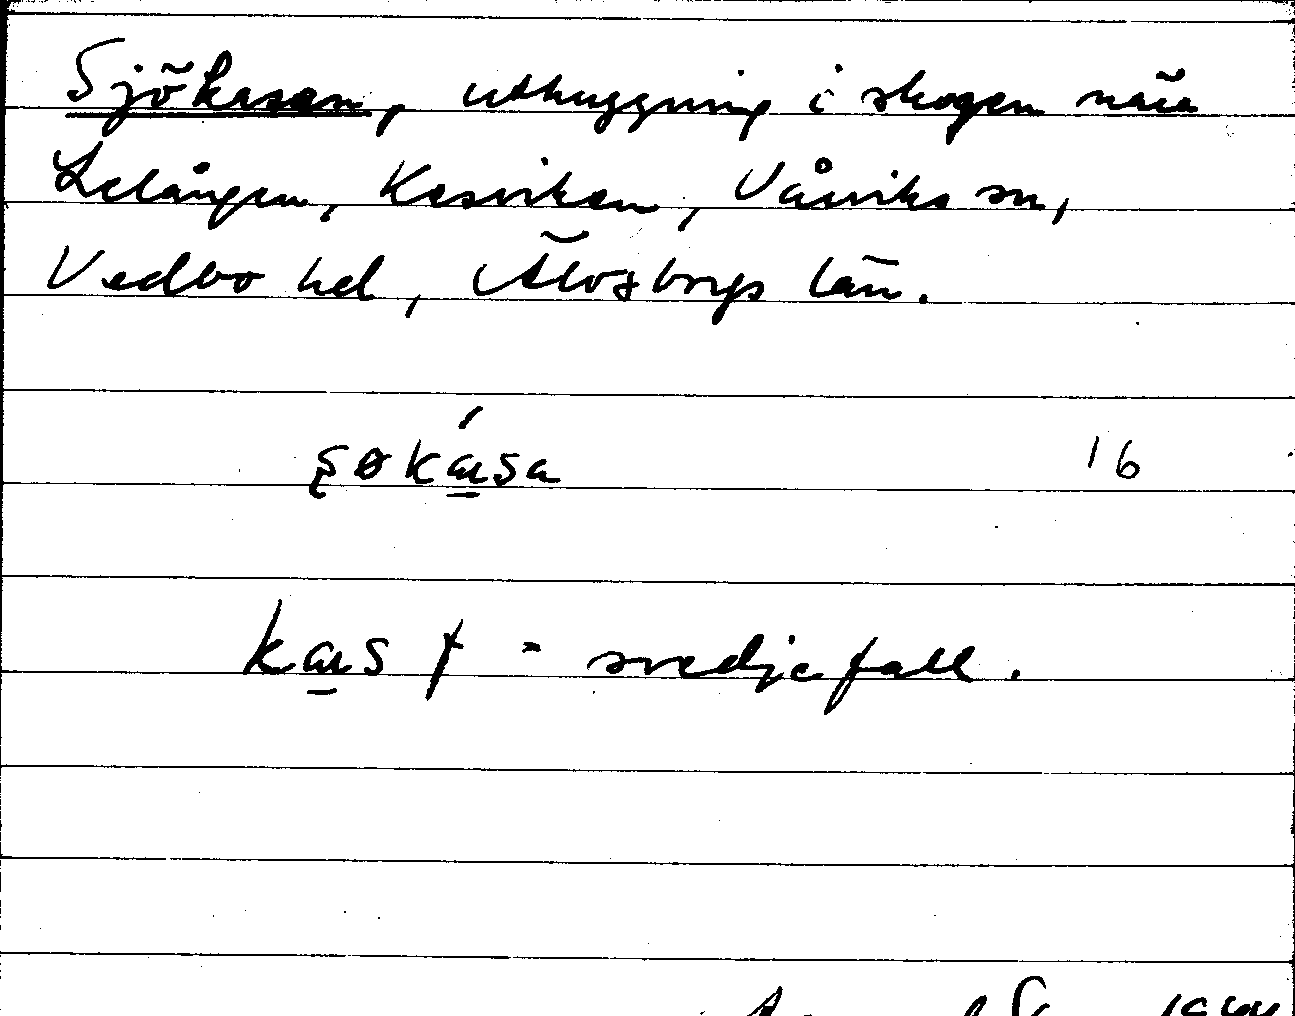 Sjökasen, uthuggning i skogen nära
Lelången, Kesviken, Vårviks sn,
Vedbo hd, Älvsborgs län.
16
kas f = svedjefall.